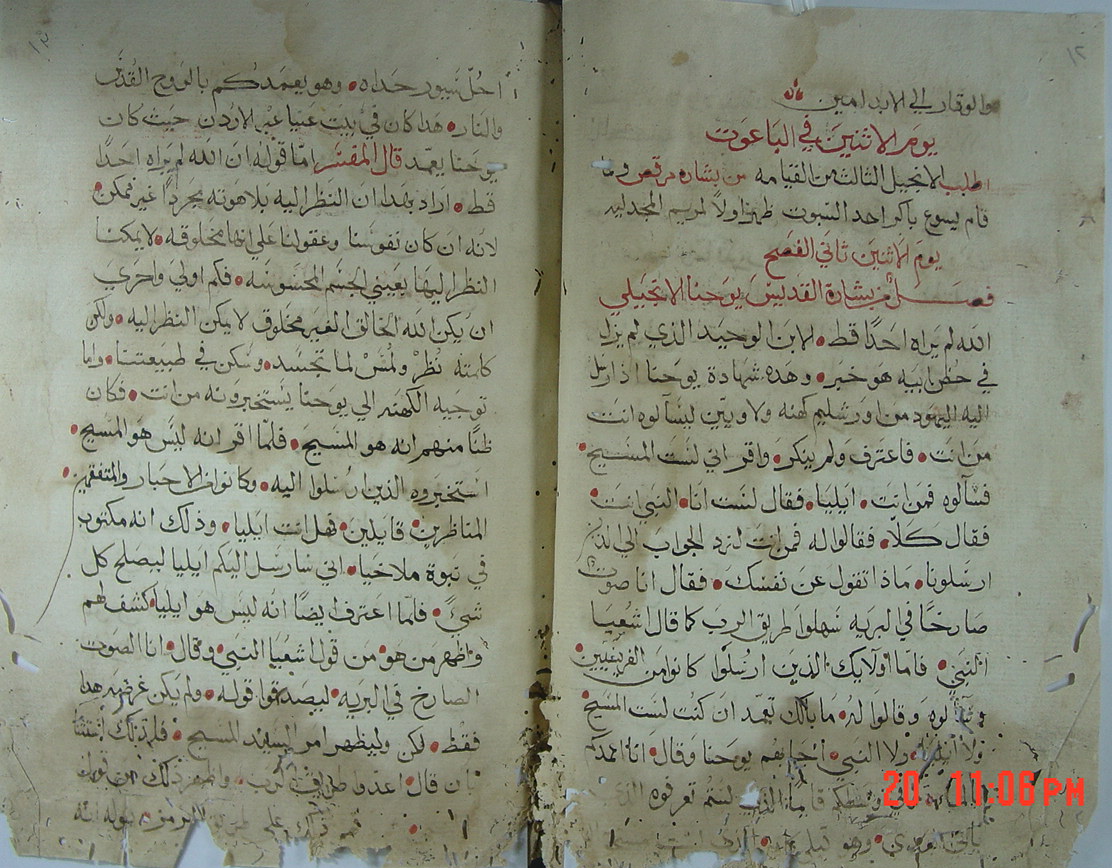 ١٢
والوقار الي الابد امين
يوم الاثنين في الباعوت
اطلب الانجيل الثالث من القيامه من بشاره مرقص وما
قام يسوع باكر احد السبوت ظهر اولاً لمريم المجدليه
يوم الاثنين ثاني الفصح
فصل من بشارة القديس يوحنا الانجيلي
الله لم يراه احدًا قط الابن الوحيد الذي لم يزل
في حضن ابيه هو خبر وهذه شهادة يوحنا اذ ارسل
اليه اليهود من اورشليم كهنه ولاويين ليسألوه انت
من انت فاعترف ولم ينكر واقر اني لست المسيح
فسألوه فمن انت ايليا فقال لست انا النبي انت
فقال كلّا فقالوا له فمن انت لنرد الجواب الي الذين
ارسلونا ماذا تقول عن نفسك فقال انا صوت
صارخًا في البريه سهلوا طريق الرب كما قال اشعيا
النبي فامّا اولايك الذين ارسلوا كانوا من الفريسيين
وسألوه وقالوا له ما بالك تعمد ان كنت لست المسيح
ولا ايليا ولا النبي اجابهم يوحنا وقال انا اعمدكم
قايمًا الذي لستم تعرفوه
ياتي بعدي وهو قبلي
١٣
احلّ سيور حذاه وهو يعمدكم بالروح القدس
والنار هذا كان في بيت عنيا عبر الاردن حيث كان
يوحنا يعمد قال المفسر امّا قوله ان الله لم يراه احدًا
قط اراد بهذا ان النظر اليه بلاهوته مجردًا غير ممكن
لانه ان كان نفوسنا وعقولنا علي انها مخلوقه لا يمكنا
النظر اليها بعيني الجسم المحسوسه فكم اولي واحري
ان يكن الله الخالق الغير مخلوق لا يمكن النظر اليه ولكن
كلمته نُظر ولُمس لما تجسد وسكن في طبيعتنا واما
توجيه الكهنه الي يوحنا يستخبرونه من انت فكان
ظنًا منهم انه هو المسيح فلمّا اقر انه ليس هو المسيح
استخبروه الذين ارسلوا اليه وكانوا من الاحبار والمتفقهين
المناظرين قايلين فهل انت ايليا وذلك انه مكتوب
في نبوة ملاخيا اني سارسل اليكم ايليا ليصلح كل
شيً فلمّا اعترف ايضًا انه ليس هو ايليا كشف لهم
واظهر من هو من قول اشعيا النبي وقال انا الصوت
الصارخ في البريه ليصدقوا قوله ولم يكن غرضهم هذا
فقط لكن وليظهر امر السيد المسيح فلذلك
بان قال اعدوا طريق الرب ذلك من قوله
قوله انه
20 11:06 PM